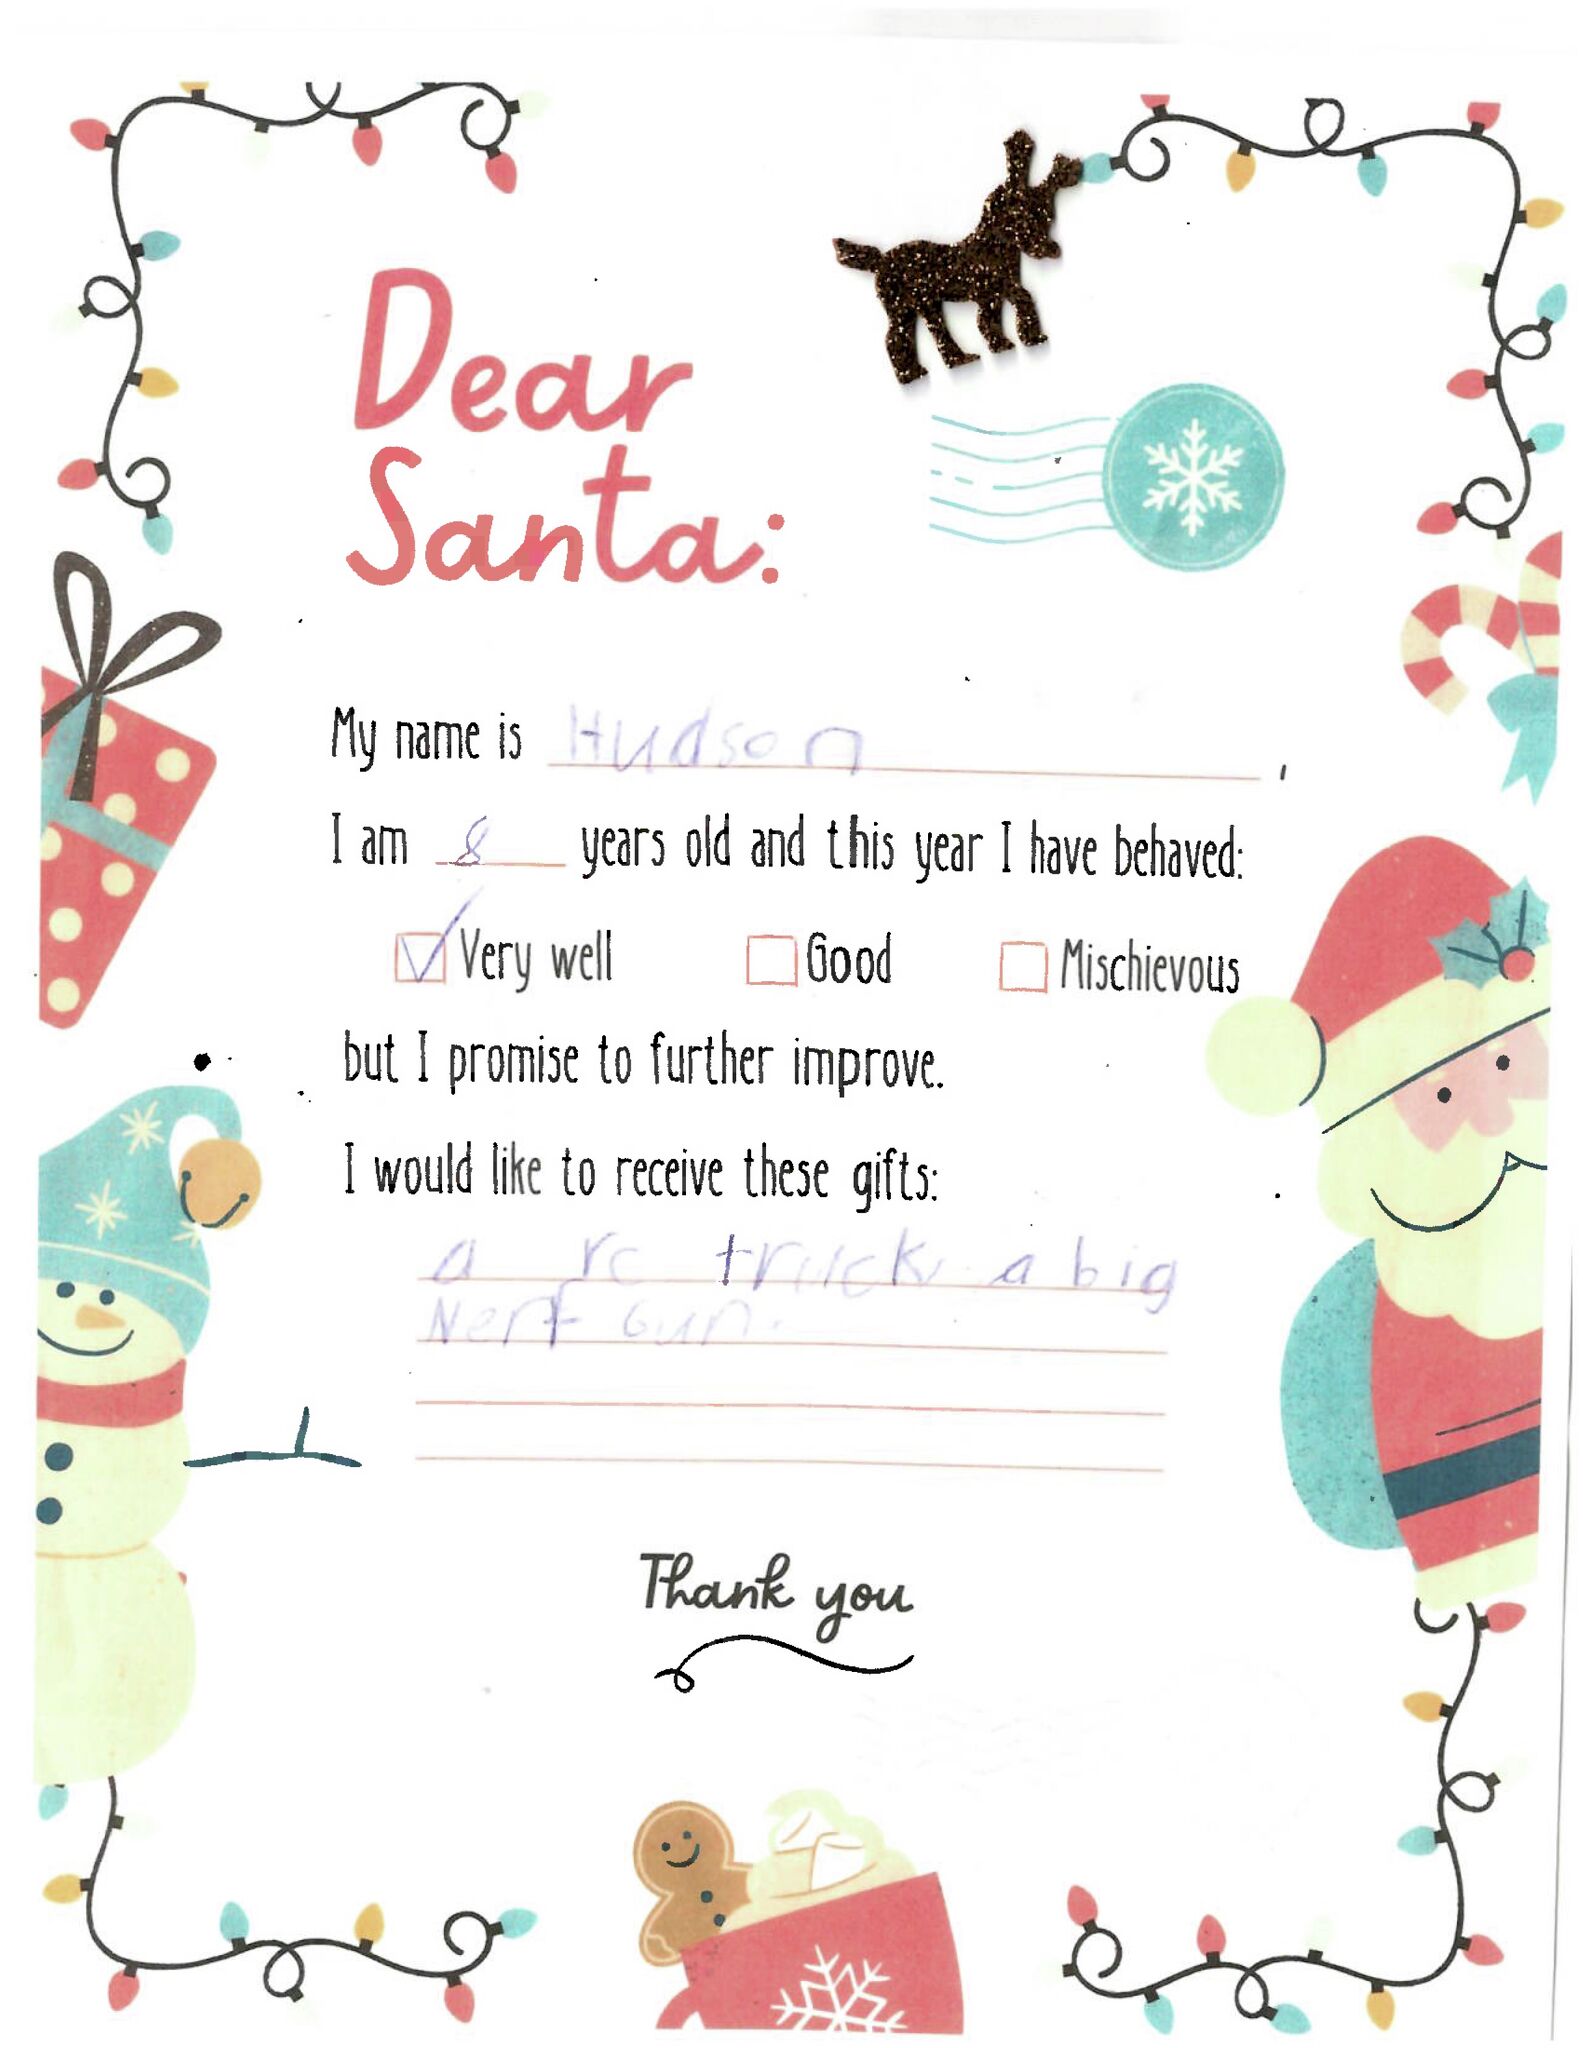 Dear
Santa:
My name is Hudson,
I am 8 years old and this year I have behaved:
Very well Good Mischievous
but I promise to further improve.
I would like to receive these gifts:
a rc truck a big
Nerf Gun.
Thank you